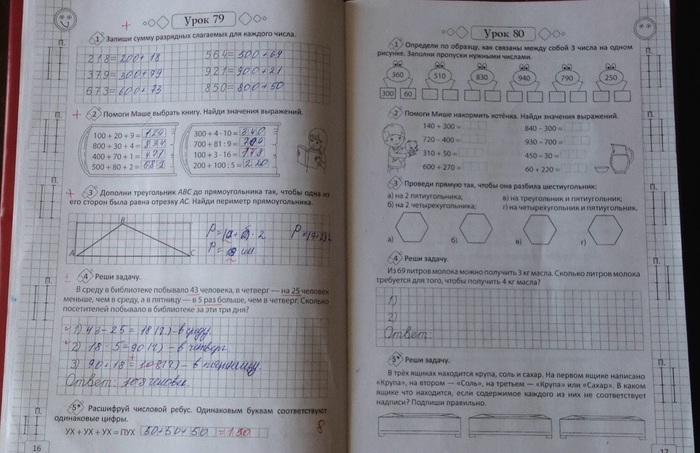 Урок 79
1 Запиши сумму разрядных слагаемых для каждого числа.
218=200+18 564=500+64
379=300+79 921=900+21
673=600+73 850=800+50
2 Помоги Маше выбрать книгу. Найди значения выражений.
100 + 20 + 9 = 129 300 + 4 · 10 = 340
800 + 30 + 4 = 834 700 + 81 : 9 =
400 + 70 + 1 = 471 100 + 3 · 16 =
500 + 80 + 2 = 582 200 + 100 : 5 = 220
3 Дополни треугольник ABC до прямоугольника так, чтобы одна из
его сторон была равна отрезку AC. Найди периметр прямоугольника.
B
A C
4 Реши задачу.
В среду в библиотеке побывало 43 человека, в четверг — на 25 человек
меньше, чем в среду, а в пятницу — в 5 раз больше, чем в четверг. Сколько
посетителей побывало в библиотеке за эти три дня?
1) 43 - 25 = 18 (ч) - в среду.
2) 18 · 5 = 90 (ч) - в четверг.
3) 90 + 18 = 108 (ч) - в пятницу.
Ответ: 108 человек.
5* Расшифруй числовой ребус. Одинаковым буквам соответствуют
одинаковые цифры.
УХ + УХ + УХ = ПУХ 50+50+50 =150
8
16
Урок 80
1 Определи по образцу, как связаны между собой 3 числа на одном
рисунке. Заполни пропуски нужными числами.
360 510 830 940 790 250
300 60
2 Помоги Мише накормить котёнка. Найди значения выражений.
140 + 300 = 840 - 300 =
720 - 400 = 930 - 700 =
310 + 50 = 450 - 30 =
600 + 270 = 60 + 220 =
3 Проведи прямую так, чтобы она разбила шестиугольник:
а) на 2 пятиугольника; в) на треугольник и пятиугольник;
б) на 2 четырёхугольника; г) на четырёхугольник и пятиугольник.
а) б) в) г)
4 Реши задачу.
Из 69 литров молока можно получить 3 кг масла. Сколько литров молока
требуется для того, чтобы получить 4 кг масла?
1)
2)
Ответ:
5* Реши задачу.
В трёх ящиках находится крупа, соль и сахар. На первом ящике написано
«Крупа», на втором — «Соль», на третьем — «Крупа» или «Сахар». В каком
ящике что находится, если содержимое каждого из них не соответствует
надписи? Подпиши правильно.
17